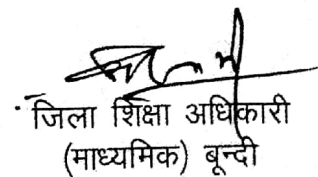 जिला शिक्षा अधिकारी
(माध्यमिक) बून्दी